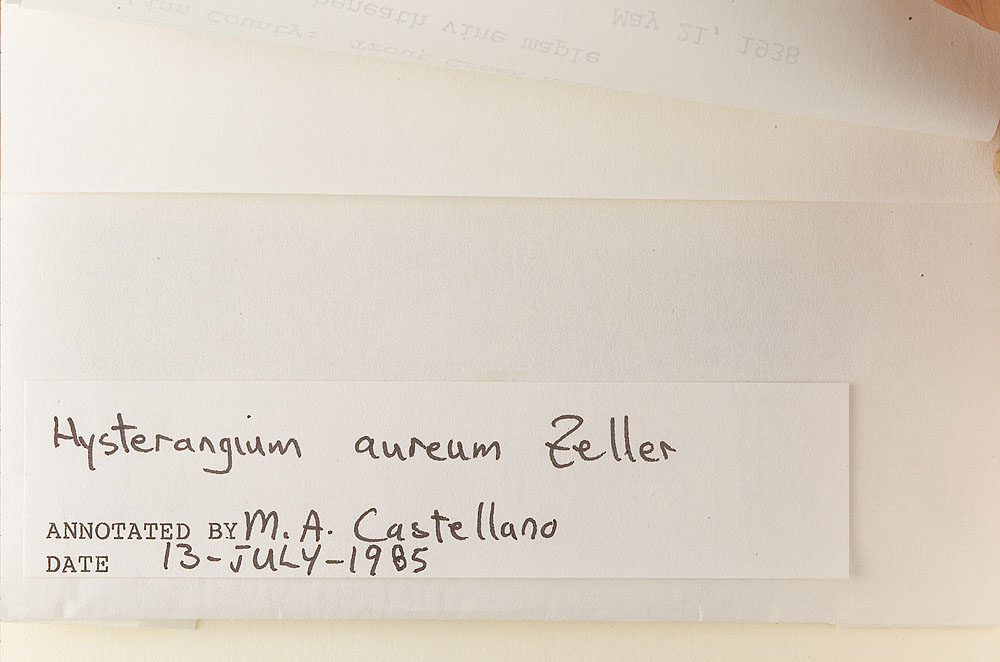 May 21, 1938
beneath vine maple
Linn County: Trout Creek
Hysterangium aureum Zeller
ANNOTATED BY M. A. Castellano
DATE 13-JULY-1985